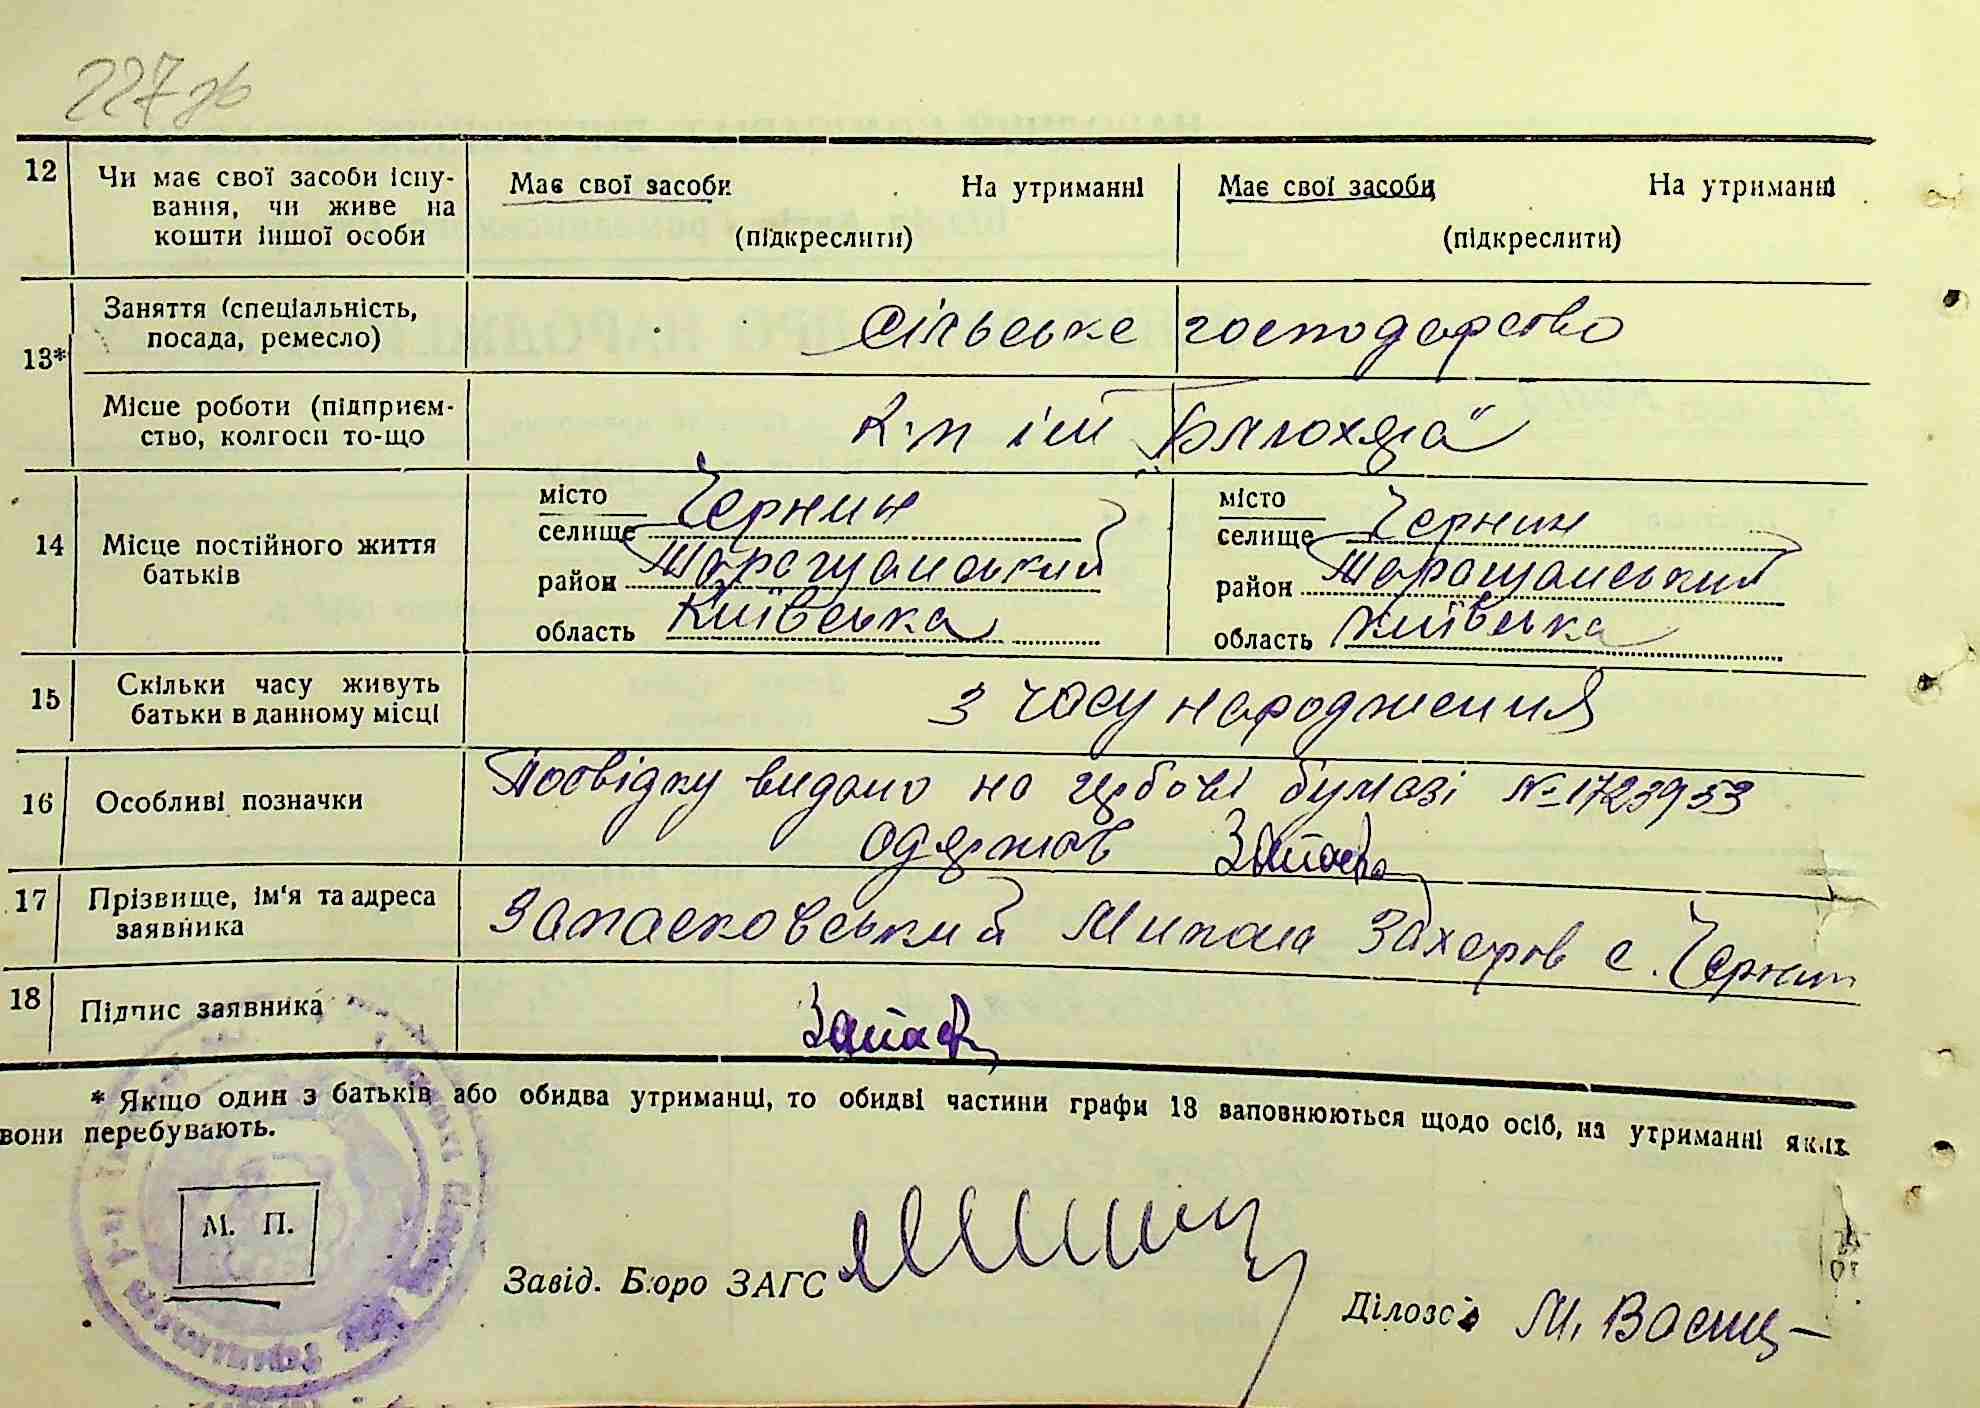 227 зв
12 Чи має свої засоби існу- Має свої засоби На утриманні Має свої засоби На утриманні
вання, чи живе на
кошти іншої особи (підкреслити) (підкреслити)
Заняття (спеціальність,
посада, ремесло) Сільське господарство
13*
Місце роботи (підприєм-
ство, колгосп то-що К-п ім
місто Чернин місто Чернин
селище селище
14 Місце постійного життя
батьків
район Таращанський район Таращанський
область Київська область Київська
15 Скільки часу живуть
батьки в данному місці з часу народження
16 Особливі позначки Посвідку видано на гербові бумазі № 1723953
одержав
17 Прізвище, ім'я та адреса
заявника Запасковський Микола Захаров с. Чернин
18 Підпис заявника
* Якщо один з батьків або обидва утриманці, то обидві частини графи 18 заповнюються щодо осіб, на утриманні яких
вони перебувають.
М. П.
Завід. Бюро ЗАГС
Діловод М.